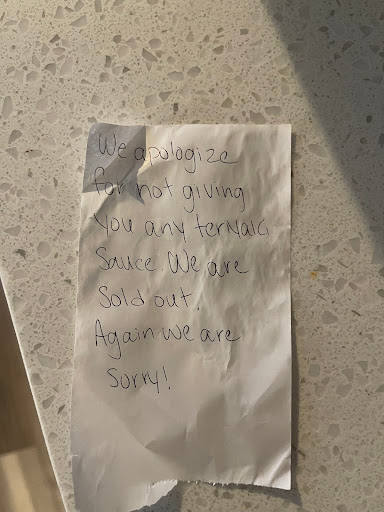 We apologize
for not giving
you any teryaki
Sauce. We are
Sold out.
Again we are
Sorry!